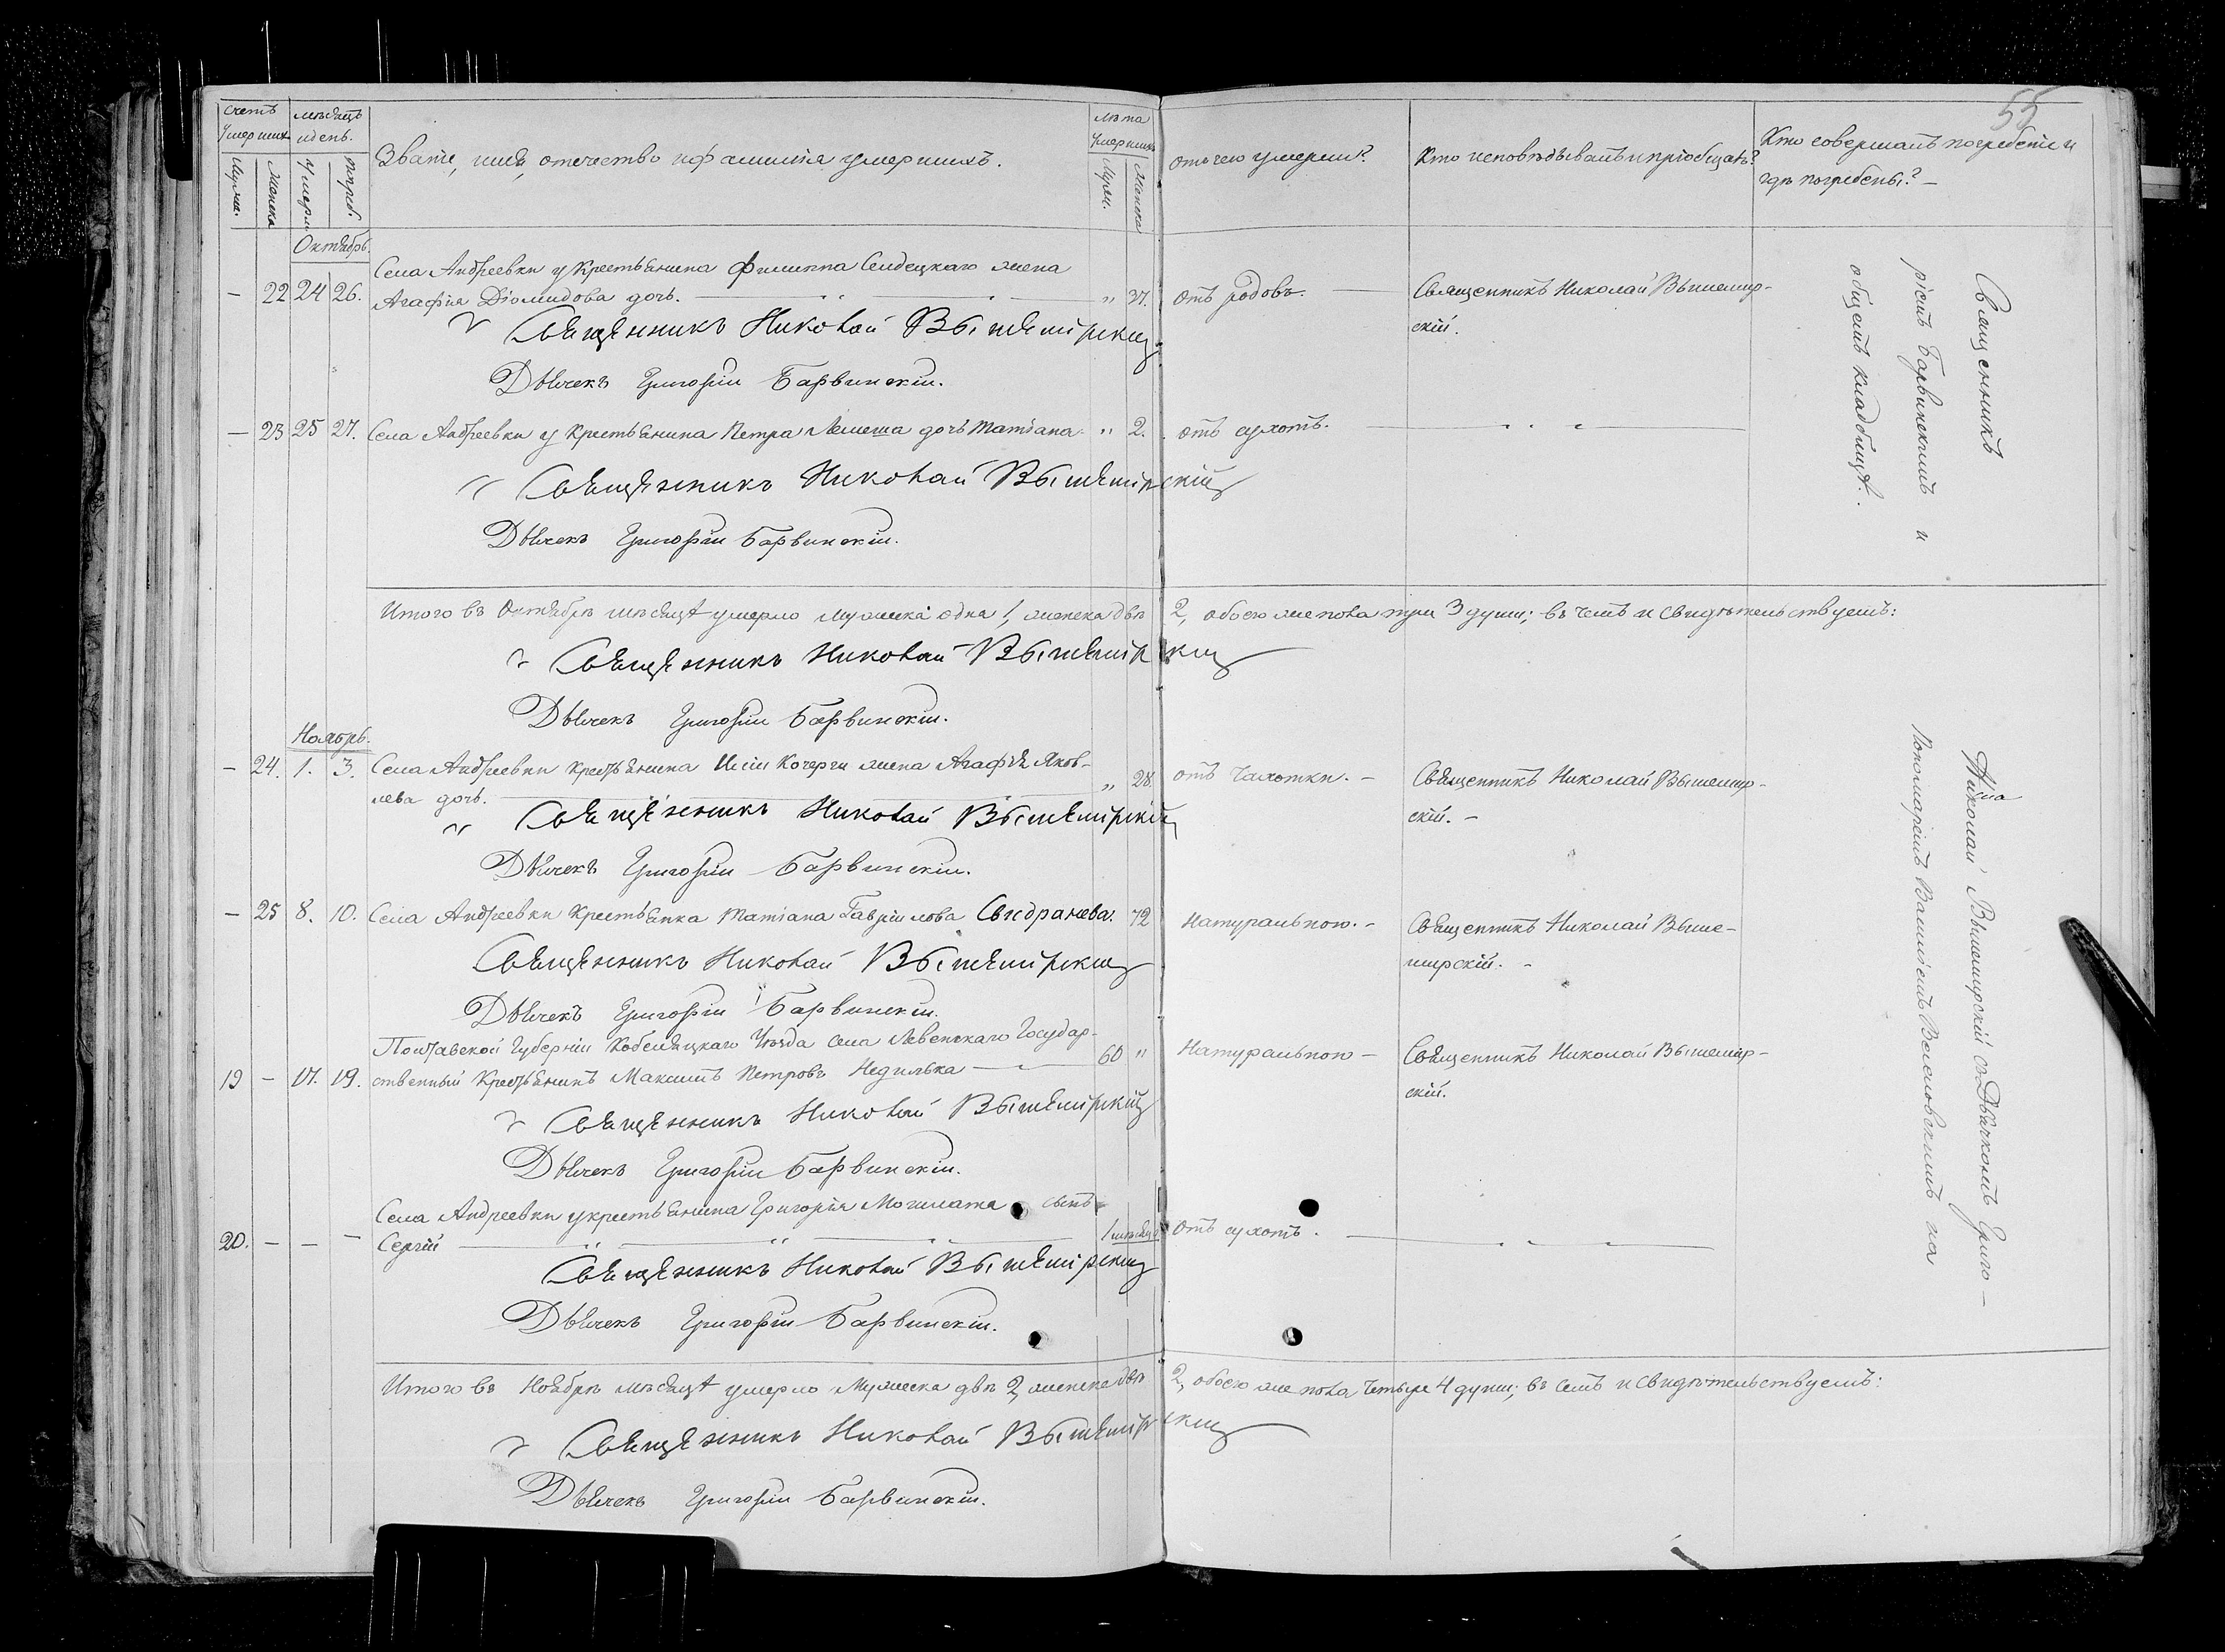 55
Счетъ умершихъ
Мужеск.
Женска
мѣсяцъ и день.
Умерл.
Погреб.
Званіе, имя, отечество и фамилія умершихъ.
Лѣта Умершихъ
Мужеск.
Женска
отъ чего умерли?
Кто исповѣдывалъ и пріобщалъ?
Кто совершалъ погребеніе и
гдѣ погребены? —
Октябрь.
Села Андреевки у крестьянина Филиппа Селецкаго жена
— 22 24 26. Агафія Діомидова дочь. — " 37. отъ родовъ. — Священникъ Николай Вышемір-
скій.
Священникъ Николай Вышемірскій
Дьячекъ Григорій Барвинскій.
— 23 25 27. Села Андреевки у крестьянина Петра Лемеша дочь Татіана. " 2. отъ сухотъ.
Священникъ Николай Вышемірскій
Дьячекъ Григорій Барвинскій.
Итого въ Октябрѣ мѣсяцѣ умерло мужеска одна 1, женска двѣ 2, обоего же пола три 3 души; въ чемъ и свидѣтельствуемъ:
Священникъ Николай Вышемірскій
Дьячекъ Григорій Барвинскій.
Ноябрь.
— 24. 1. 3. Села Андреевки крестьянина Кочерги жена Агафія Яков-
лева дочь. — " 28. отъ чахотки. — Священникъ Николай Вышемір-
скій. —
Священникъ Николай Вышемірскій
Дьячекъ Григорій Барвинскій.
— 25 8. 10. Села Андреевки крестьянка Татіана Гавріилова Свидранева. 72 Натуральною. — Священникъ Николай Выше-
мирскій. —
Священникъ Николай Вышемірскій
Дьячекъ Григорій Барвинскій.
Полтавской Губерніи Кобеляцкаго Уѣзда села Левенскаго Государ-
19 — 17. 19. ственный крестьянинъ Максимъ Петровъ Недилька — 60 " Натуральною — Священникъ Николай Вышемір-
скій.
Священникъ Николай Вышемірскій
Дьячекъ Григорій Барвинскій.
Села Андреевки у крестьянина Григорія Могилата сынъ
20. — — — Сергій — 1 мѣсяц. отъ сухотъ.
Священникъ Николай Вышемірскій
Дьячекъ Григорій Барвинскій.
Итого въ Ноябрѣ мѣсяцѣ умерло мужеска двѣ 2, женска двѣ 2, обоего же пола четыре 4 души; въ чемъ и свидѣтельствуемъ:
Священникъ Николай Вышемірскій
Дьячекъ Григорій Барвинскій.
Священникъ Николай Вышемирскій съ Дьячкомъ Григо-
ріемъ Барвинскимъ и Пономаремъ на
общемъ кладбищѣ.